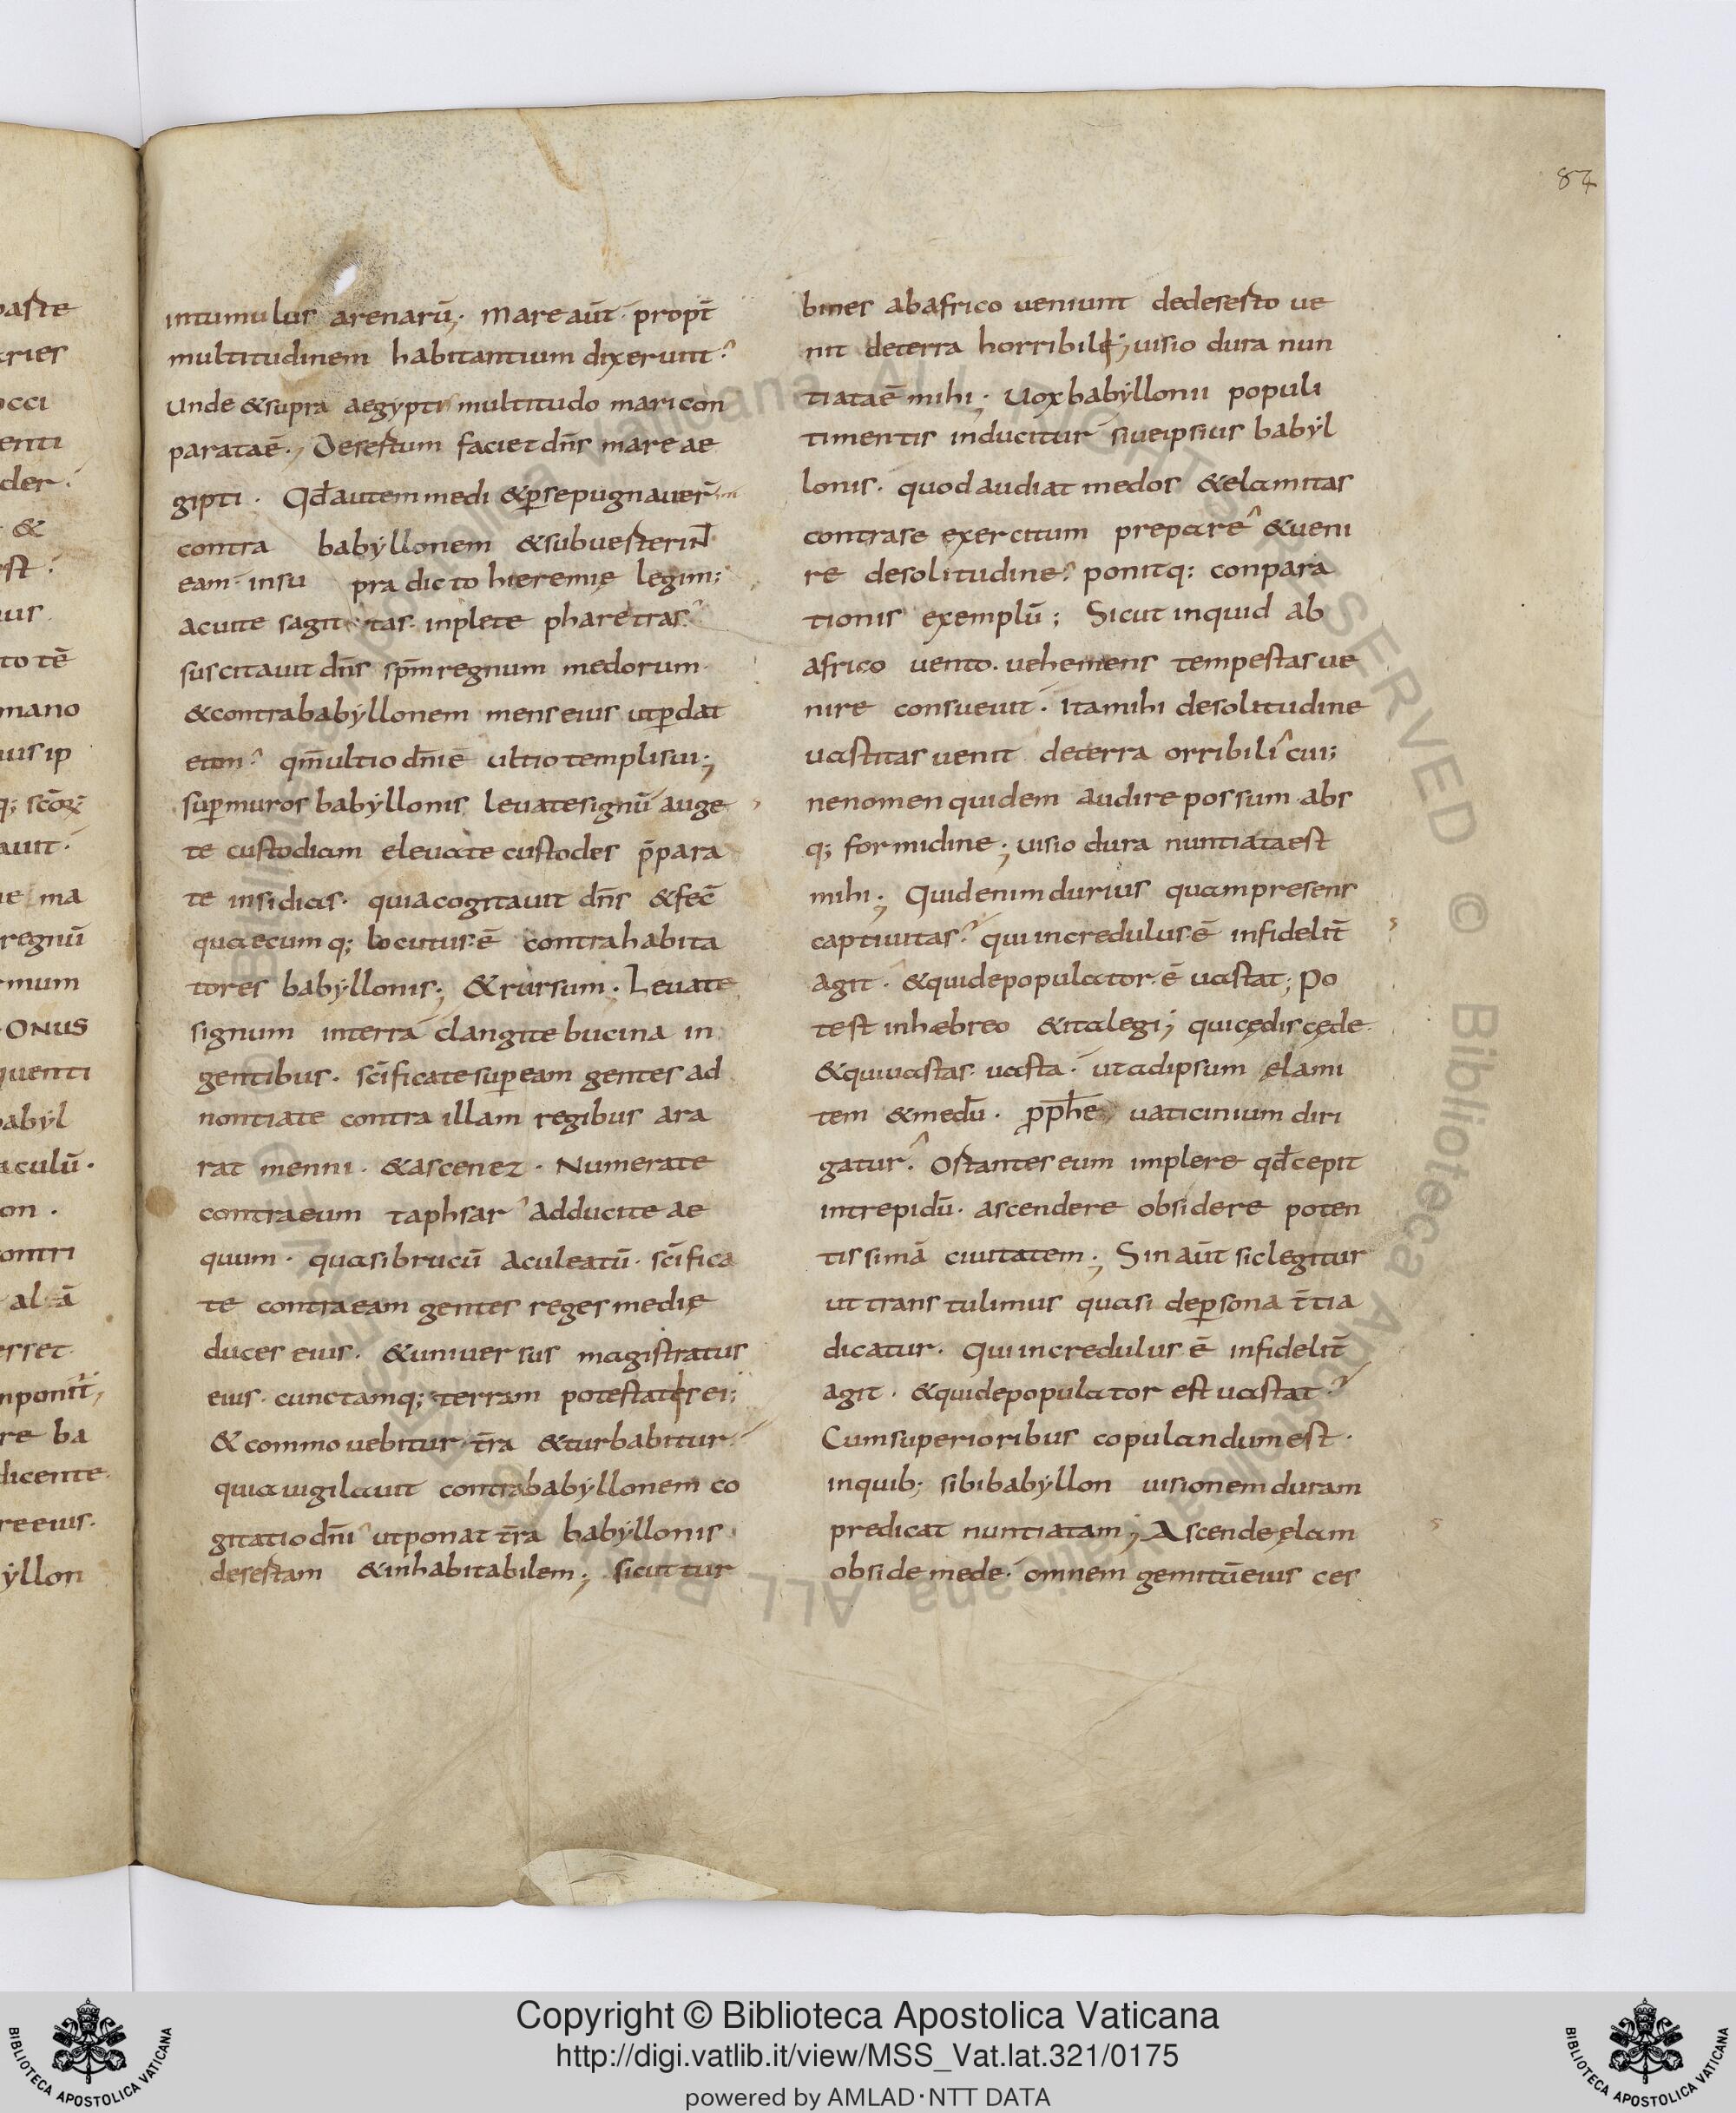 84
paste
cries
occi
enti
der.
&
est.
uus
to tē
mano
uus ip
q; scōꝝ
auit.
ue ma
regnū
mum
ONUS
quenti
babyl
aculū.
on.
ontri
al ā
esset.
mponit̄,
re ba
dicente
re eius.
yllon
intumulus arenarū; Mare aūt propt̄
multitudinem habitantium dixerunt.
Unde & supra aegypti multitudo mari con
parata ē; Desestum faciet dn̄s mare ae
gipti. Qd̄ autem medi & ꝑse pugnauer̄
contra babyllonem & subuesterint
eam. in su pra dicto hieremię legim;
acuite sagit tas. inplete pharetras.
suscitauit dn̄s sp̄m regnum medorum.
& contra babyllonem mens eius ut ꝑdat
eam. qm̄ ultio dn̄i ē ultio templi sui;
suꝑ muros babyllonis leuate signū auge
te custodiam eleuate custodes p̄para
te insidias. quia cogitauit dn̄s & fec̄
quaecumq; locutus ē contra habita
tores babyllonis; & rursum. Leuate
signum in terra clangite bucina in
gentibus. sc̄ificate suꝑ eam gentes ad
nontiate contra illam regibus ara
rat menni. & ascenez. Numerate
contra eum taphsar adducite ae
quum. quasi brucū aculeatū. sc̄ifica
te contra eam gentes reges medię
duces eius. & uniuersus magistratus
eius. cunctamq; terram potestatis ei;
& commouebitur t̄ra & turbabitur.
quia uigilauit contra babyllonem co
gitatio dn̄i ut ponat t̄ra babyllonis
desestam & inhabitabilem; sicut tur
bines ab africo ueniunt de desesto ue
nit de terra horribili; uisio dura nun
tiata ē mihi; Uox babyllonii populi
timentis inducitur siue ipsius babyl
lonis. quod audiat medos & elamitas
contra se exercitum prepare & ueni
re desolitudine. ponitq; conpara
tionis exemplū; Sicut inquid ab
africo uento. uehemens tempestas ue
nire consueuit. ita mihi desolitudine
uastitas uenit de terra orribili cui;
ne nomen quidem audire possum abs
q; formidine; uisio dura nuntiata est
mihi; Quid enim durius quam presens
captiuitas. qui incredulus ē infidelit̄
agit. & qui depopulator ē uastat; Po
test in hæbreo & ita legi; qui cędis cęde.
& qui uastas uasta. ut ad ipsum ęlami
tem & medū. pp̄he uaticinium diri
gatur. Ostantes eum implere qd̄ cepit
intrepidū. ascendere obsidere poten
tissimā ciuitatem; Sin aūt sic legitur
ut trans tulimus quasi de ꝑsona t̄tia
dicatur. Qui incredulus ē infidelit̄
agit. & qui depopulator est uastat.
Cum superioribus copulandum est.
in quib; sibi babyllon uisionem duram
predicat nuntiatam; Ascende ęlam
obside mede. omnem gemitū eius ces
Copyright © Biblioteca Apostolica Vaticana
http://digi.vatlib.it/view/MSS_Vat.lat.321/0175
powered by AMLAD·NTT DATA
BIBLIOTECA APOSTOLICA VATICANA
BIBLIOTECA APOSTOLICA VATICANA